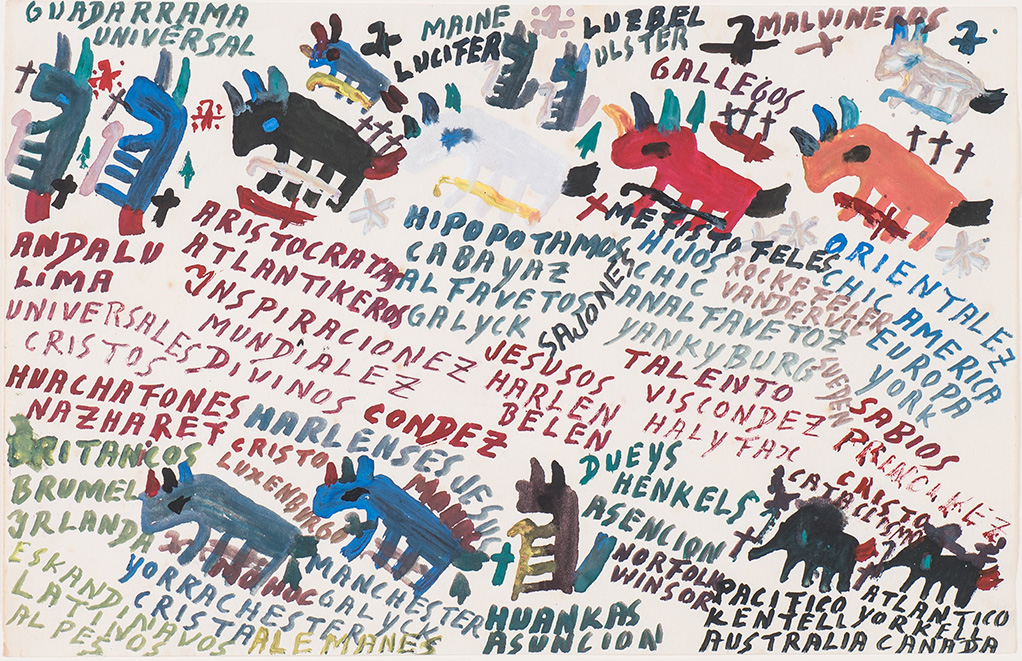 GUADARRAMA
UNIVERSAL
MAINE
LUCIFER
LUZBEL
ULSTER
MALVINEROS
GALLEGOS
ANDALU
LIMA
UNIVERSALES
CRISTOS DIVINOS
ARISTOCRATAS
ATLANTIKEROS
YNSPIRACIONEZ
MUNDIALEZ
HIPOPOTAMOS
CABAYAZ
ALFAVETOS
GALYCK
SAJONES
METISTOFELES
HIJOS
CHIC
ANALFAVETOZ
YANKYBURG
ROCKEFELER
ORIENTALEZ
CHIC AMERICA
EUROPA
YORK
JESUSOS
HARLEN
BELEN
TALENTO
VISCONDEZ
HALYFAX
SABIOS
HUACHAFONES
NAZHARET
HARLENSES
CONDEZ
BRITANICOS
BRUMEL
YRLANDA
ESKANDINAVOS
LATINOS
ALPES
CRISTO
LUXENBURGO
JESUS
DUEYS
HENKELS
ASENCION
NORFOLK
WINSOR
CRISTO
MANCHESTER
GALYCK
YORRACHESTER
CRISTA
ALEMANES
HUANKAS
ASUNCION
PACIFICO
ATLANTICO
KENTELL YORKELL
AUSTRALIA CANADA